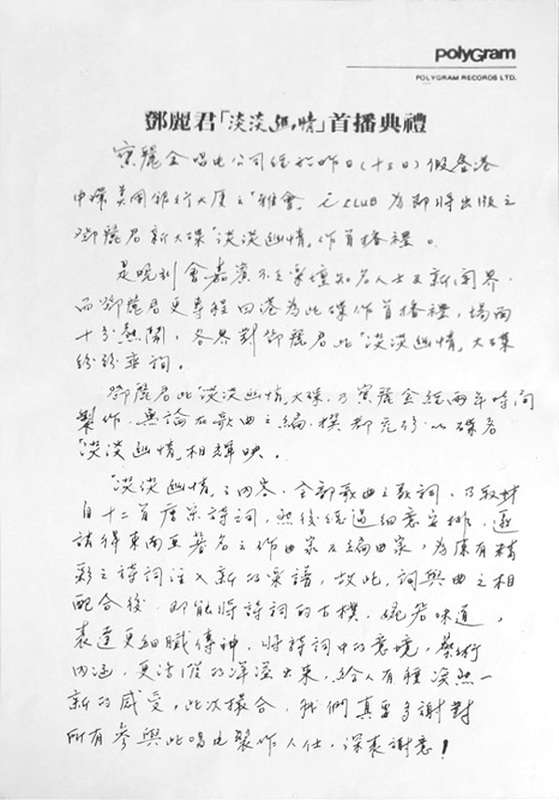 polyGram
POLYGRAM RECORDS LTD.
鄧麗君「淡淡幽情」首播典禮
寳麗金唱片公司經於昨日(十三日)假香港
中環美國銀行大廈之「雅會」 i CLUB 為即將出版之
鄧麗君新大碟「淡淡幽情」作首播禮。
是晚到會嘉賓不乏樂壇知名人士及新聞界,
而鄧麗君更專程回港為此碟作首播禮,場面
十分熱鬧,各界對鄧麗君此「淡淡幽情」大碟
紛紛亟詞。
鄧麗君此「淡淡幽情」大碟,乃寳麗金經兩年時間
製作,無論在歌曲之編、撰都充份以碟名
「淡淡幽情」相輝映。
「淡淡幽情」之內容,全部歌曲之歌詞,乃取材
自十二首唐宋詩詞,然後經過細意安排,邀
請得東南亞著名之作曲家及編曲家,為原有精
彩之詩詞注入新的樂譜,故此,詞與曲之相
配合後,即能將詩詞的古樸、婉若味道,
表達更細膩傳神,將詩詞中的意境,藝術
內涵,更清的洋溢出來,給人有種渙然一
新的感受,此次撮合,我們真要多謝對
所有參與此唱片製作人仕,深表謝意!